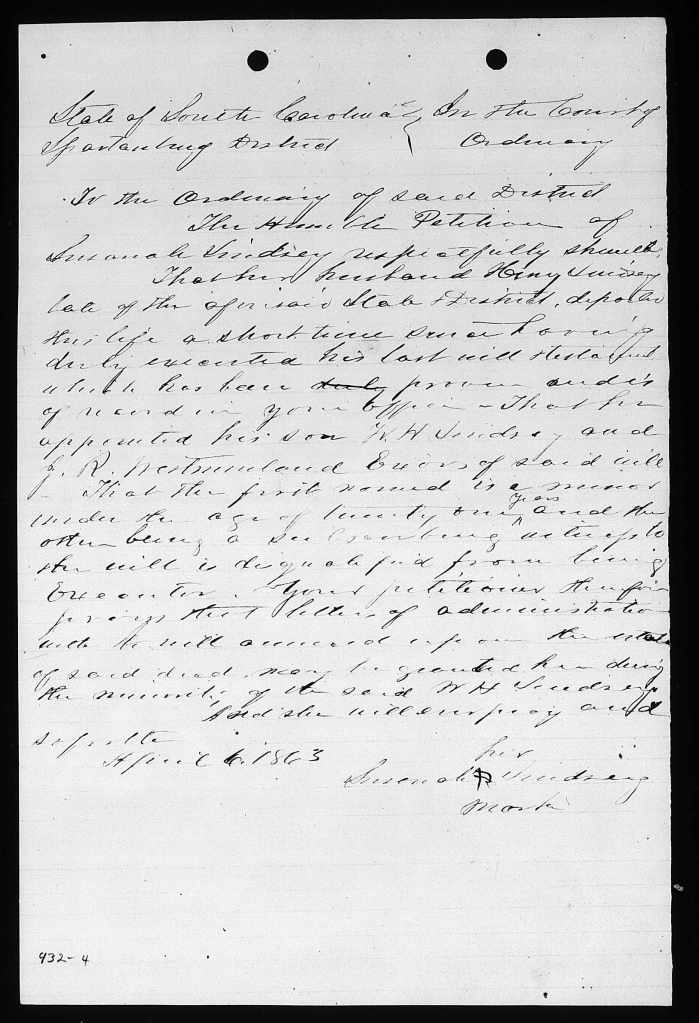 State of South Carolina } In the Court of
Spartanburg District Ordinary
To the Ordinary of said District
The Humble Petition of
Susanah Lindsey respectfully sheweth
That her husband Henry Lindsey
late of the aforesaid State & District, departed
this life a short time since having
duly executed his last will & testament
which has been duly proven and is
of record in your office - That he
appointed his son W. H Lindsey and
J. R. Westmoreland Exors of said will
- That the first named is a minor
under the age of twenty one years and the
other being a subscribing witness to
the will is disqualified from being
Executor. Your petitioner therefore
prays that letters of administration
with the will annexed upon the estate
of said decd. may be granted her during
the minority of the said W H Lindsey
And she will ever pray and
April 6. 1863
her
Susanah Lindsey
mark
932-4